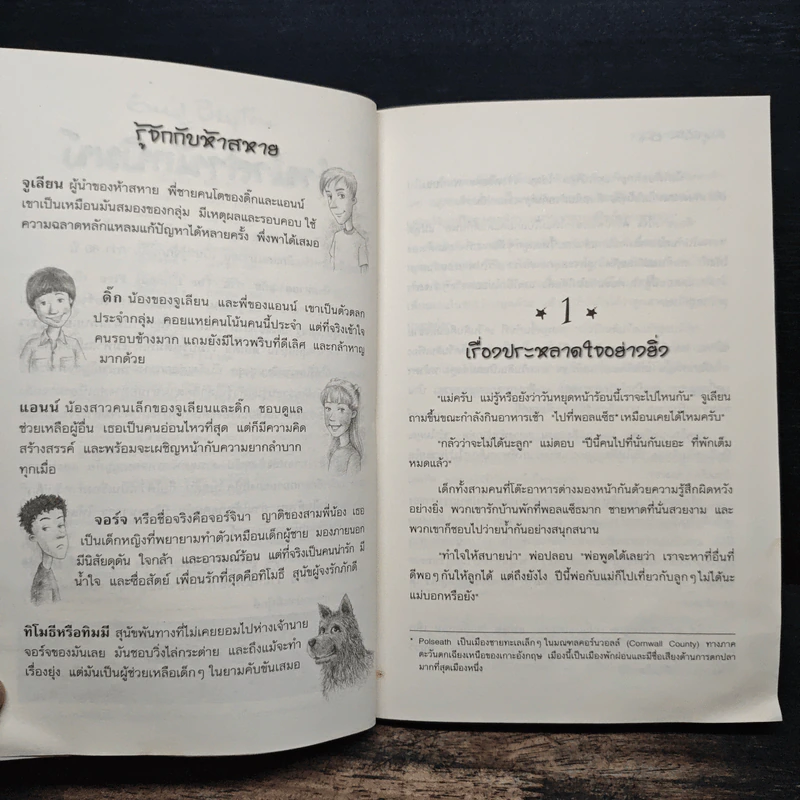 รู้จักกับห้าสหาย
จูเลียน ผู้นำของห้าสหาย พี่ชายคนโตของดิ๊กและแอนน์
เขาเป็นเหมือนมันสมองของกลุ่ม มีเหตุผลและรอบคอบ ใช้
ความฉลาดหลักแหลมแก้ปัญหาได้หลายครั้ง พึ่งพาได้เสมอ
ดิ๊ก น้องของจูเลียน และพี่ของแอนน์ เขาเป็นตัวตลก
ประจำกลุ่ม คอยแหย่คนโน้นคนนี้ประจำ แต่ที่จริงเข้าใจ
คนรอบข้างมาก แถมยังมีไหวพริบที่ดีเลิศ และกล้าหาญ
มากด้วย
แอนน์ น้องสาวคนเล็กของจูเลียนและดิ๊ก ชอบดูแล
ช่วยเหลือผู้อื่น เธอเป็นคนอ่อนไหวที่สุด แต่ก็มีความคิด
สร้างสรรค์ และพร้อมจะเผชิญหน้ากับความยากลำบาก
ทุกเมื่อ
จอร์จ หรือชื่อจริงคือจอร์จินา ญาติของสามพี่น้อง เธอ
เป็นเด็กหญิงที่พยายามทำตัวเหมือนเด็กผู้ชาย มองภายนอก
มีนิสัยดุดัน ใจกล้า และอารมณ์ร้อน แต่ที่จริงเป็นคนน่ารัก มี
น้ำใจ และซื่อสัตย์ เพื่อนรักที่สุดคือทิโมธี สุนัขผู้จงรักภักดี
ทิโมธีหรือทิมมี สุนัขพันทางที่ไม่เคยยอมไปห่างเจ้านาย
จอร์จของมันเลย มันชอบวิ่งไล่กระต่าย และถึงแม้จะทำ
เรื่องยุ่ง แต่มันเป็นผู้ช่วยเหลือเด็กๆ ในยามคับขันเสมอ
1
เรื่องประหลาดใจอย่างยิ่ง
"แม่ครับ แม่รู้หรือยังว่าวันหยุดหน้าร้อนนี้เราจะไปไหนกัน" จูเลียน
ถามขึ้นขณะกำลังกินอาหารเช้า "ไปที่พอลแซ็ธ* เหมือนเคยได้ไหมครับ"
"กลัวว่าจะไม่ได้นะลูก" แม่ตอบ "ปีนี้คนไปที่นั่นกันเยอะ ที่พักเต็ม
หมดแล้ว"
เด็กทั้งสามคนที่โต๊ะอาหารต่างมองหน้ากันด้วยความรู้สึกผิดหวัง
อย่างยิ่ง พวกเขารักบ้านพักที่พอลแซ็ธมาก ชายหาดที่นั่นสวยงาม และ
พวกเขาก็ชอบไปว่ายน้ำกันอย่างสนุกสนาน
"ทำใจให้สบายน่า" พ่อปลอบ "พ่อพูดได้เลยว่า เราจะหาที่อื่นที่
ดีพอๆ กันให้ลูกได้ แต่ถึงยังไง ปีนี้พ่อกับแม่ก็ไปเที่ยวกับลูกๆ ไม่ได้นะ
แม่บอกหรือยัง"
* Polseath เป็นเมืองชายทะเลเล็กๆ ในมณฑลคอร์นวอลล์ (Cornwall County) ทางภาค
ตะวันตกเฉียงเหนือของเกาะอังกฤษ เมืองนี้เป็นเมืองพักผ่อนและมีชื่อเสียงด้านการตกปลา
มากที่สุดเมืองหนึ่ง